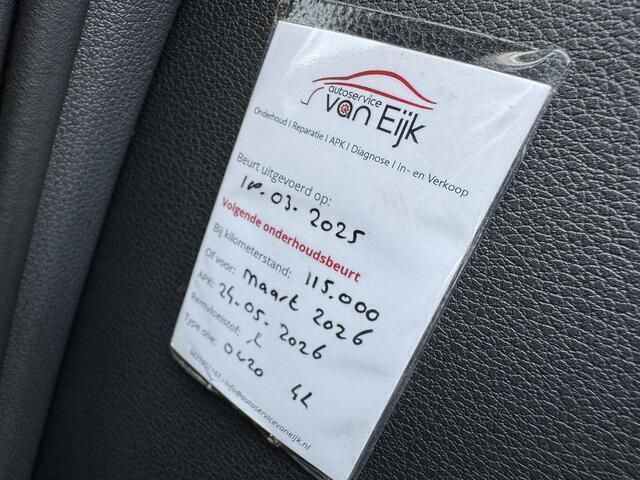 autoservice
van Eijk
Onderhoud | Reparatie | APK | Diagnose | In- en Verkoop
Beurt uitgevoerd op:
10.03.2025
Volgende onderhoudsbeurt
Bij kilometerstand: 115.000
Of voor: maart 2026
APK: 24-05-2026
Remvloeistof:
Type olie: 0W20 4L
info@autoservicevaneijk.nl